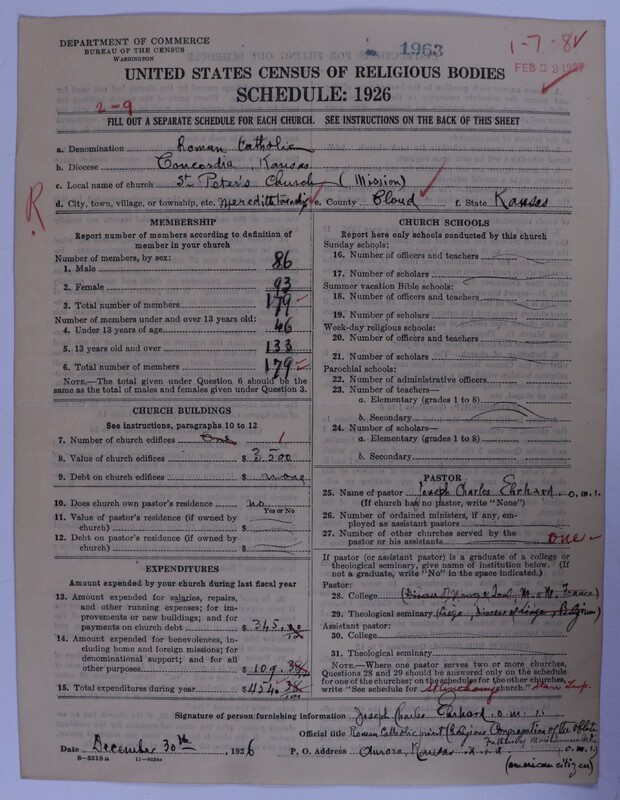 DEPARTMENT OF COMMERCE
BUREAU OF THE CENSUS
WASHINGTON
1963
1-7-82
FEB 1927
UNITED STATES CENSUS OF RELIGIOUS BODIES
SCHEDULE: 1926
2-9
FILL OUT A SEPARATE SCHEDULE FOR EACH CHURCH. SEE INSTRUCTIONS ON THE BACK OF THIS SHEET
a. Denomination Roman Catholic
b. Diocese Concordia, Kansas
c. Local name of church St Peter's Church (Mission)
R
d. City, town, village, or township, etc. Meredith Township e. County Cloud f. State Kansas
MEMBERSHIP
Report number of members according to definition of
member in your church
Number of members, by sex:
1. Male 86
2. Female 93
3. Total number of members 179
Number of members under and over 13 years old:
4. Under 13 years of age 46
5. 13 years old and over 133
6. Total number of members 179
NOTE.—The total given under Question 6 should be the
same as the total of males and females given under Question 3.
CHURCH BUILDINGS
See instructions, paragraphs 10 to 12
7. Number of church edifices One 1
8. Value of church edifices $ 3.500
9. Debt on church edifices $ none
10. Does church own pastor's residence? no
Yes or No
11. Value of pastor's residence (if owned by
church) $
12. Debt on pastor's residence (if owned by
church) $
EXPENDITURES
Amount expended by your church during last fiscal year
13. Amount expended for salaries, repairs,
and other running expenses; for im-
provements or new buildings; and for
payments on church debt $ 345.
14. Amount expended for benevolences, in-
cluding home and foreign missions; for
denominational support; and for all
other purposes $ 109.38
15. Total expenditures during year $ 454.38
CHURCH SCHOOLS
Report here only schools conducted by this church
Sunday schools:
16. Number of officers and teachers
17. Number of scholars
Summer vacation Bible schools:
18. Number of officers and teachers
19. Number of scholars
Week-day religious schools:
20. Number of officers and teachers
21. Number of scholars
Parochial schools:
22. Number of administrative officers
23. Number of teachers—
a. Elementary (grades 1 to 8)
b. Secondary
24. Number of scholars—
a. Elementary (grades 1 to 8)
b. Secondary
PASTOR
25. Name of pastor Joseph Charles Ehrhard, O.M.I.
(If church has no pastor, write "None")
26. Number of ordained ministers, if any, em-
ployed as assistant pastors
27. Number of other churches served by the
pastor or his assistants one
If pastor (or assistant pastor) is a graduate of a college or
theological seminary, give name of institution below. (If
not a graduate, write "No" in the space indicated.)
Pastor:
28. College France)
29. Theological seminary (Liege, Diocese of Liege, Belgium)
Assistant pastor:
30. College
31. Theological seminary
NOTE.—Where one pastor serves two or more churches,
Questions 28 and 29 should be answered only on the schedule
for one of the churches; on the schedules for the other churches,
write "See schedule for church."
Signature of person furnishing information Joseph Charles Ehrhard, O.M.I.
Official title Roman Catholic priest (Religious Congregation of the Oblate
Fathers of O.M.I.)
Date December 30th, 1926 P. O. Address Aurora, Kansas U.S.A.
(american citizen)
8-5518a 11-9034